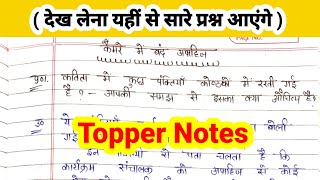 ( देख लेना यहीं से सारे प्रश्न आएंगे )
कैमरे में बंद अपाहिज
प्र01. कविता में कुछ पंक्तियाँ कोष्ठकों में रखी गई
है? - आपकी समझ से इसका क्या औचित्य है?
उ0 ये
बोली
गई
Topper Notes
इन पंक्तियों से पता चलता है कि
कार्यक्रम संचालक को अपाहिज से कोई